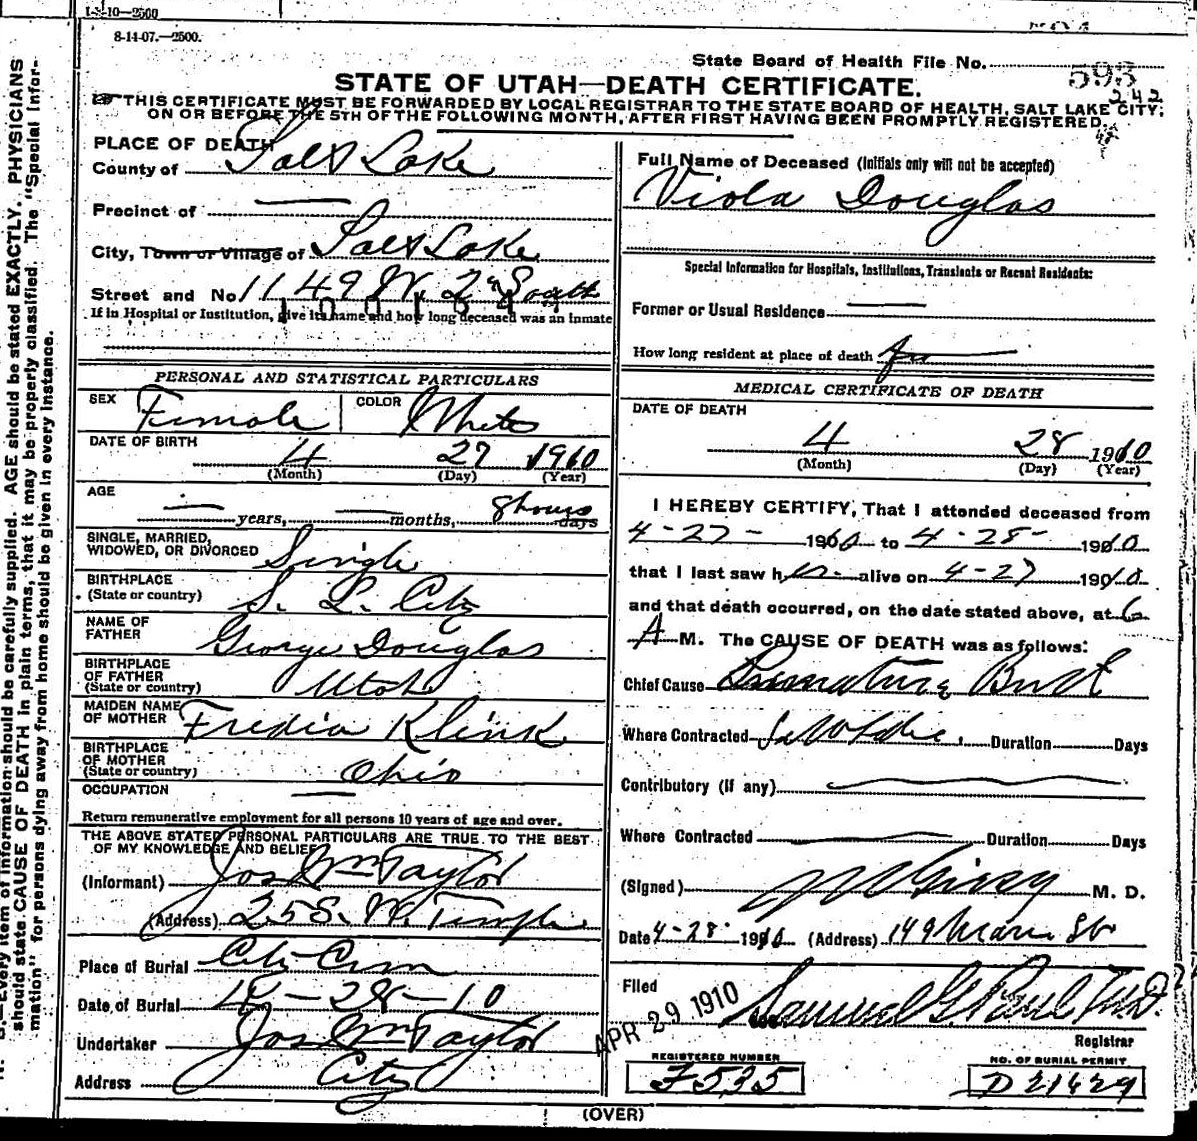 1-1-10—2500
8-11-07.—2500.
State Board of Health File No. 593
242
STATE OF UTAH—DEATH CERTIFICATE.
THIS CERTIFICATE MUST BE FORWARDED BY LOCAL REGISTRAR TO THE STATE BOARD OF HEALTH, SALT LAKE CITY,
ON OR BEFORE THE 5TH OF THE FOLLOWING MONTH, AFTER FIRST HAVING BEEN PROMPTLY REGISTERED.
should state CAUSE OF DEATH in plain terms, that it may be properly classified. The "Special Infor-
mation" for persons dying away from home should be given in every instance.
—Every item of information should be carefully supplied. AGE should be stated EXACTLY. PHYSICIANS
PLACE OF DEATH
County of Salt Lake
Precinct of —
City, Town or Village of Salt Lake
Street and No. 1149 W. 2nd South
If in Hospital or Institution, give its name and how long deceased was an inmate
PERSONAL AND STATISTICAL PARTICULARS
SEX Female COLOR White
DATE OF BIRTH
4 27 1910
(Month) (Day) (Year)
AGE
— years, — months, 8 hours days
SINGLE, MARRIED,
WIDOWED, OR DIVORCED Single
BIRTHPLACE
(State or country) S. L. City
NAME OF
FATHER George Douglas
BIRTHPLACE
OF FATHER
(State or country) Utah
MAIDEN NAME
OF MOTHER Fredia Klink
BIRTHPLACE
OF MOTHER
(State or country) Ohio
OCCUPATION —
Return remunerative employment for all persons 10 years of age and over.
THE ABOVE STATED PERSONAL PARTICULARS ARE TRUE TO THE BEST
OF MY KNOWLEDGE AND BELIEF
(Informant) Jos Wm Taylor
(Address) 25 S. W. Temple
Place of Burial City Cem
Date of Burial 4-28-10
Undertaker Jos Wm Taylor
Address City
Full Name of Deceased (Initials only will not be accepted)
Viola Douglas
Special Information for Hospitals, Institutions, Transients or Recent Residents:
Former or Usual Residence —
How long resident at place of death
MEDICAL CERTIFICATE OF DEATH
DATE OF DEATH
4 28 1910
(Month) (Day) (Year)
I HEREBY CERTIFY, That I attended deceased from
4-27- 1910 to 4-28- 1910
that I last saw her alive on 4-27 1910
and that death occurred, on the date stated above, at 6
A M. The CAUSE OF DEATH was as follows:
Chief Cause Premature Birth
Where Contracted Duration Days
Contributory (if any) —
Where Contracted — Duration Days
(Signed) M. D.
Date 4-28- 1910 (Address) 149 Main St
Filed APR 29 1910 Samuel G. Paul M.D.
Registrar
REGISTERED NUMBER
F535
NO. OF BURIAL PERMIT
D21429
(OVER)